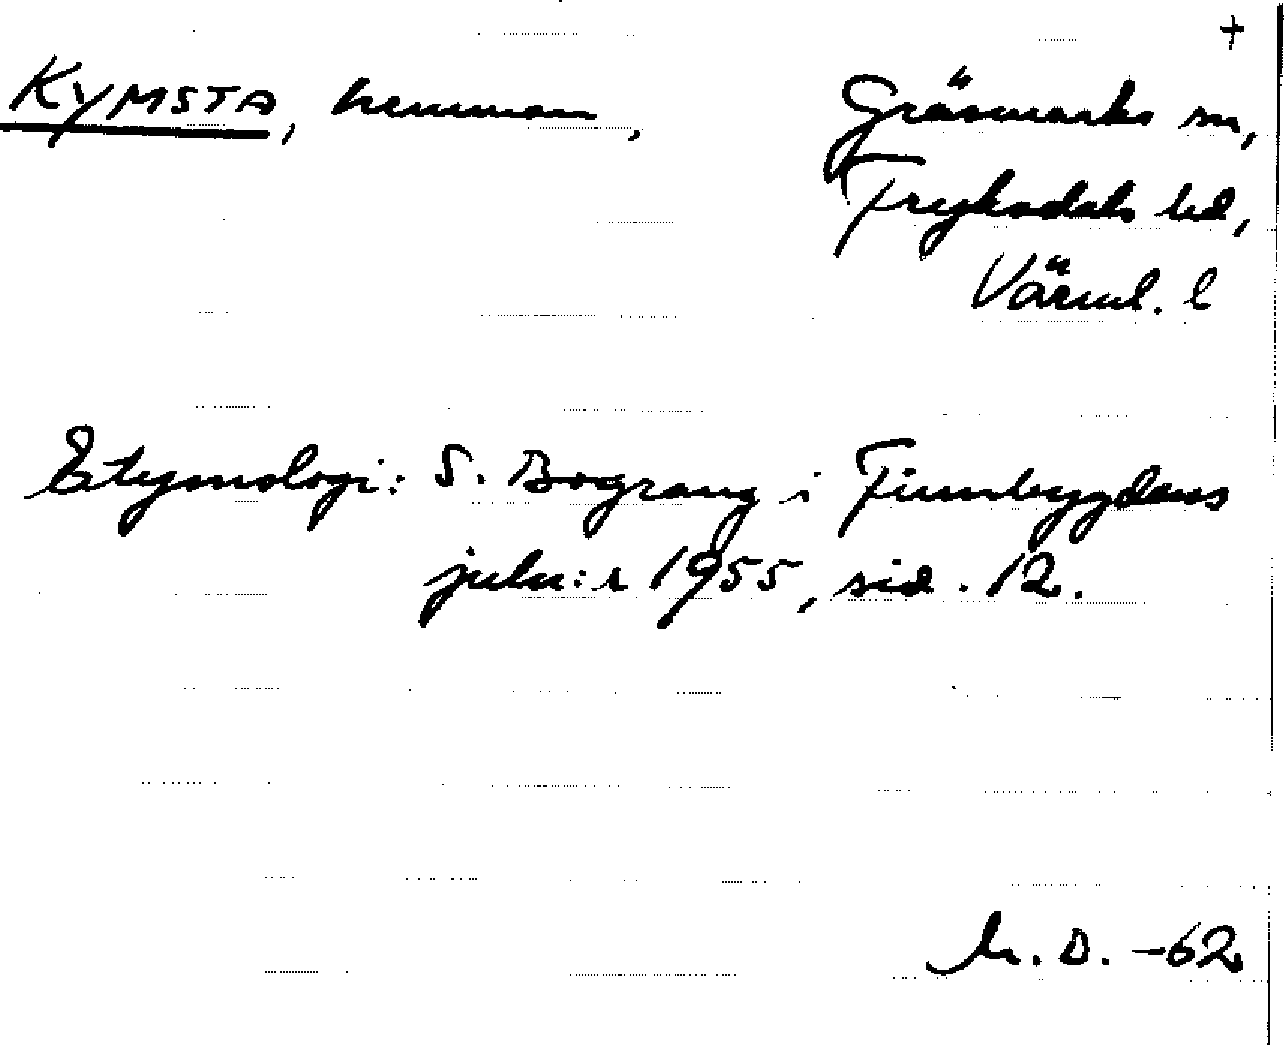 +
KYMSTA, hemman, Gräsmarks sn,
Fryksdals hd,
Värml. l
Etymologi: S. Bograng i Finnbygdens
julnr 1955, sid. 12.
D. -62